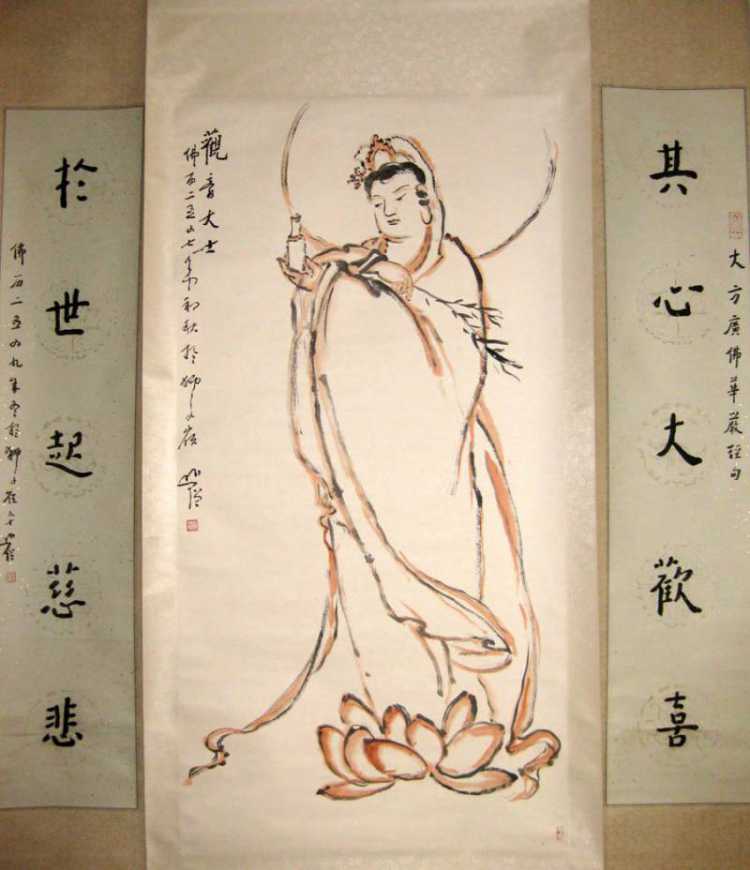 其心大歡喜
大方廣佛華嚴經句
觀音大士
佛 二五 七年 初秋於獅子
於世起慈悲
佛 二五 九年冬於獅子